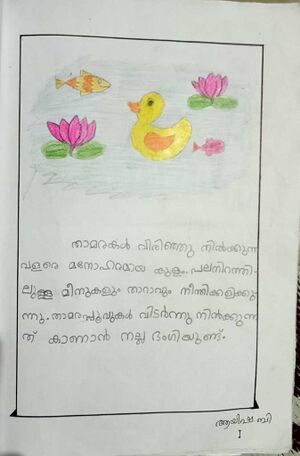 താമരകൾ വിരിഞ്ഞു നിൽക്കുന്ന
വളരെ മനോഹരമായ കുളം. പലനിറത്തി-
ലുള്ള മീനുകളും താറാവും നീന്തികളിക്കു
ന്നു. താമരപ്പൂവുകൾ വിടർന്നു നിൽക്കുന്ന
ത് കാണാൻ നല്ല ഭംഗിയുണ്ട്.
ആയിഷ ബി
I